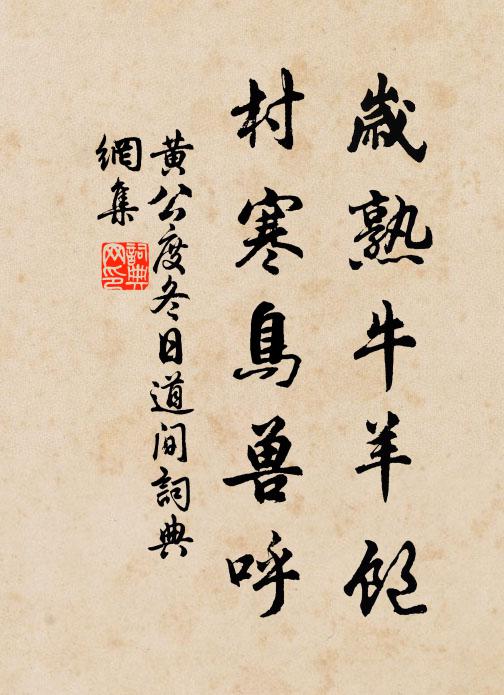 歲熟牛羊飽
村寒鳥獸呼
黃公度冬日道間詞典
網集
詞典網印